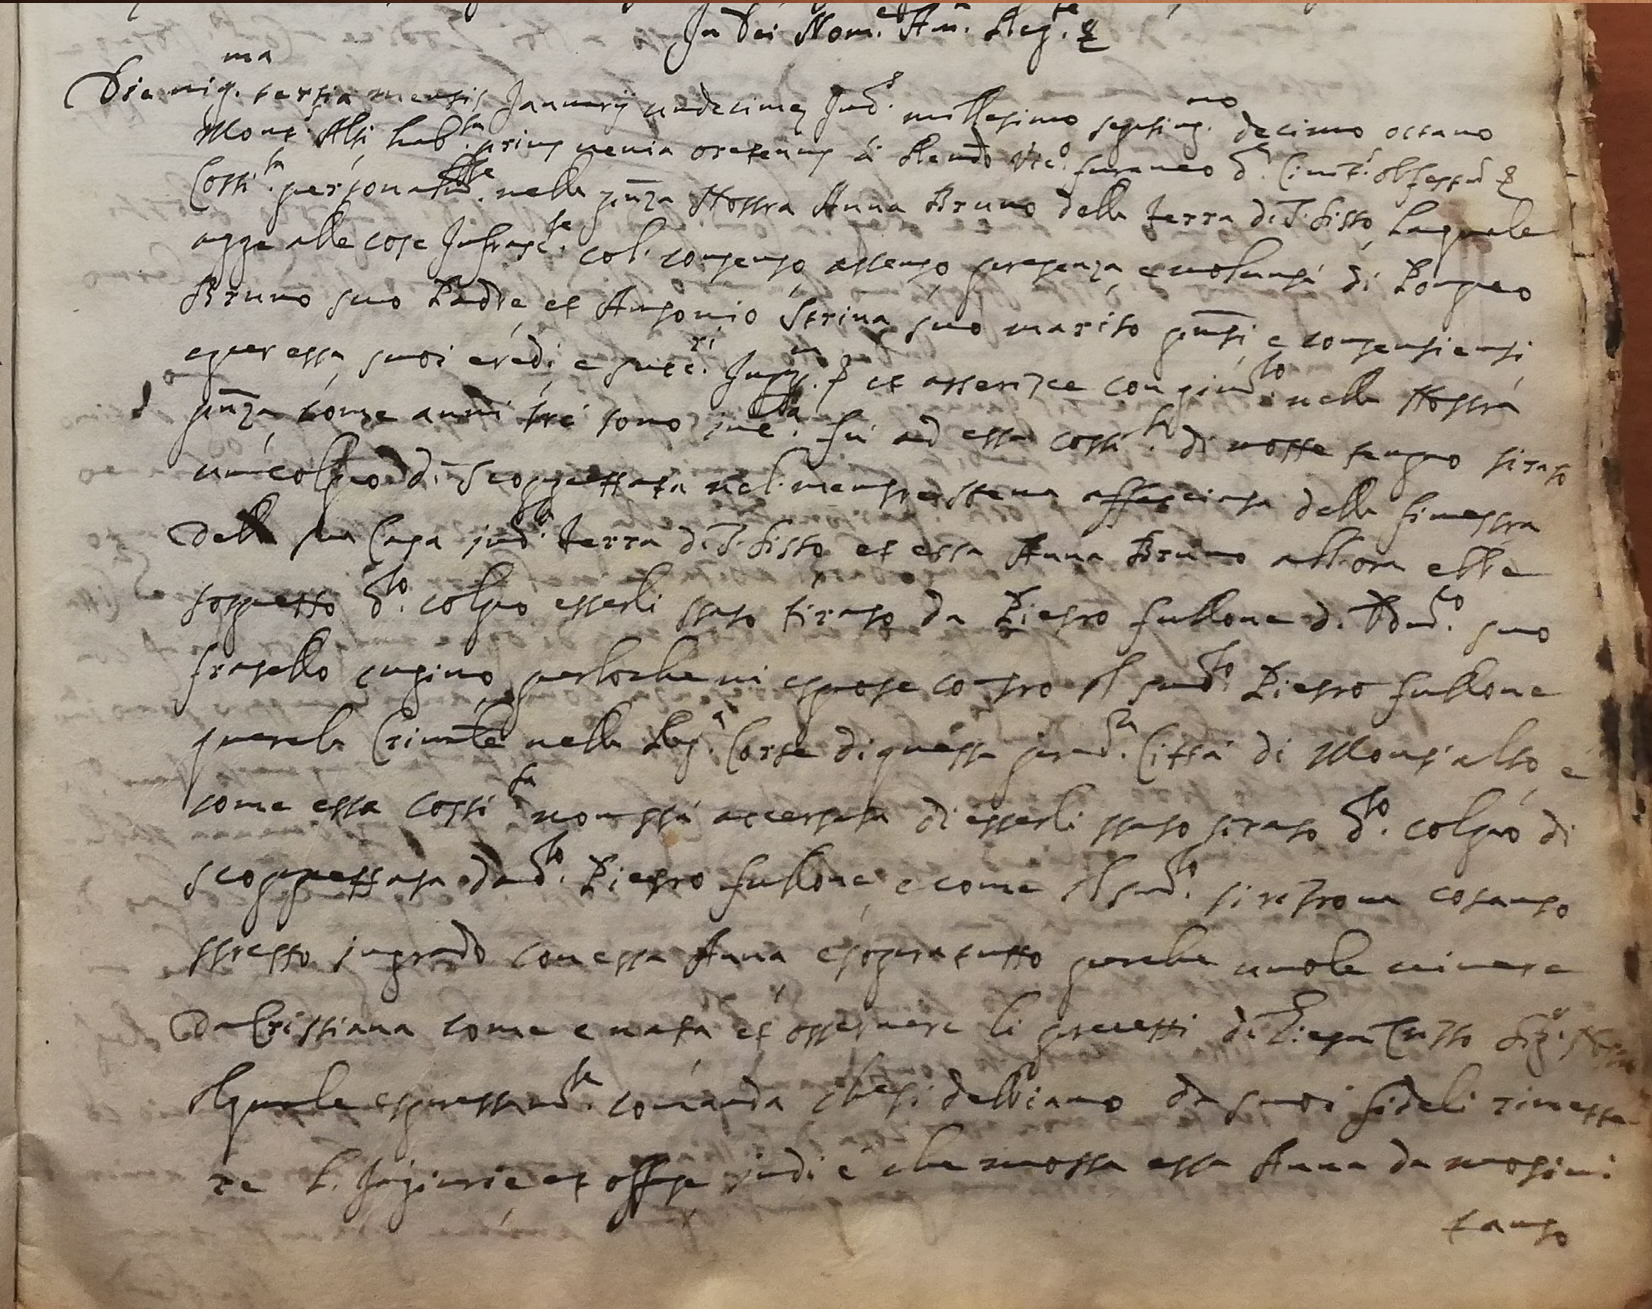 In Dei Nom.e Am. Reg.te &
Die vig.ma tertia mensis Januarij undecimæ Ind.s millesimo septing.mo decimo octavo
Mont' Alti hab.ta prius venia oretenus à Rendo Vic.o foraneo d. Civit.
Costi.ta personalm.te nella pñza Nostra Anna Bruno della terra di S. Sisto, laquale
agge alle cose Infrasc.te col' consenso, assenso, presenza, e volunta' di Pompeo
Bruno suo Padre, et Antonio Serina suo marito pñti e consentienti
e per essa, suoi eredi, e succ.ri et asserisce con giur.to nella Nostra
pñza, come anni tré sono fu' ad essa costi.ta di notte tempo tirato
un colpo di scoppettata nel mentre steva affacciata della finestra
della sua Casa in d.a terra di S. Sisto et essa Anna Bruno allora ebbe
sospetto d.to colpo esserli stato tirato da Pietro fullone di suo
fratello cugino, perloche vi espose contro il sud.to Pietro fullone
querela Crim.le nella Reg.a Corte di questa pred.a Città di Mont'alto, e
come essa costi.ta non stà accertata di esserli stato tirato d.to colpo di
scoppettata da d.to Pietro fullone, e come il sud.to si ritrova cotanto
stretto in grado con essa Anna e sopra tutto perche vuole vivere
da Cristiana come e nata et osservare li precetti di Giesu Cristo Sig.r
il quale espressam.te comanda che si debbiano da suoi fideli rimette
re l'Ingiurie, et offese indi è che mossa essa Anna da motivi
tanto